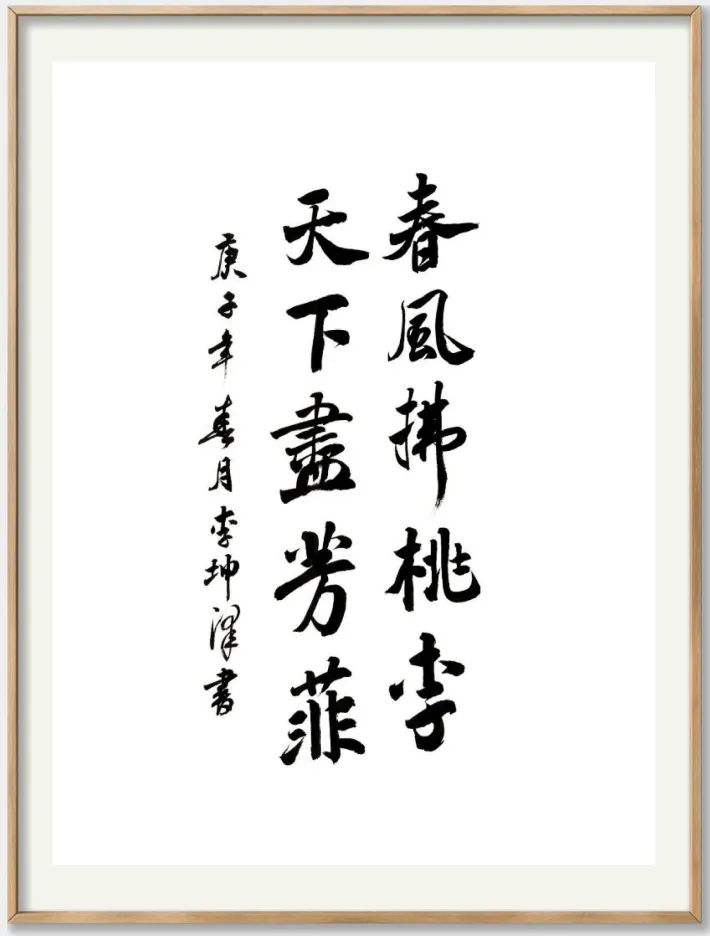 春風拂桃李
天下盡芳菲
庚子年春月李坤澤書